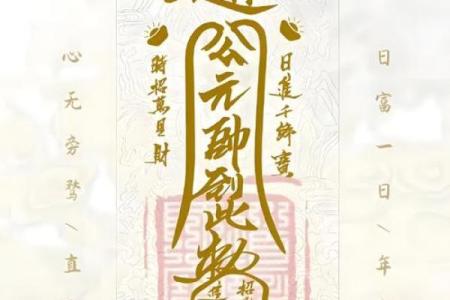 日富一日/年
日進千鄉寶
公元帥到此敕
時招萬里財
心无旁骛/直
招